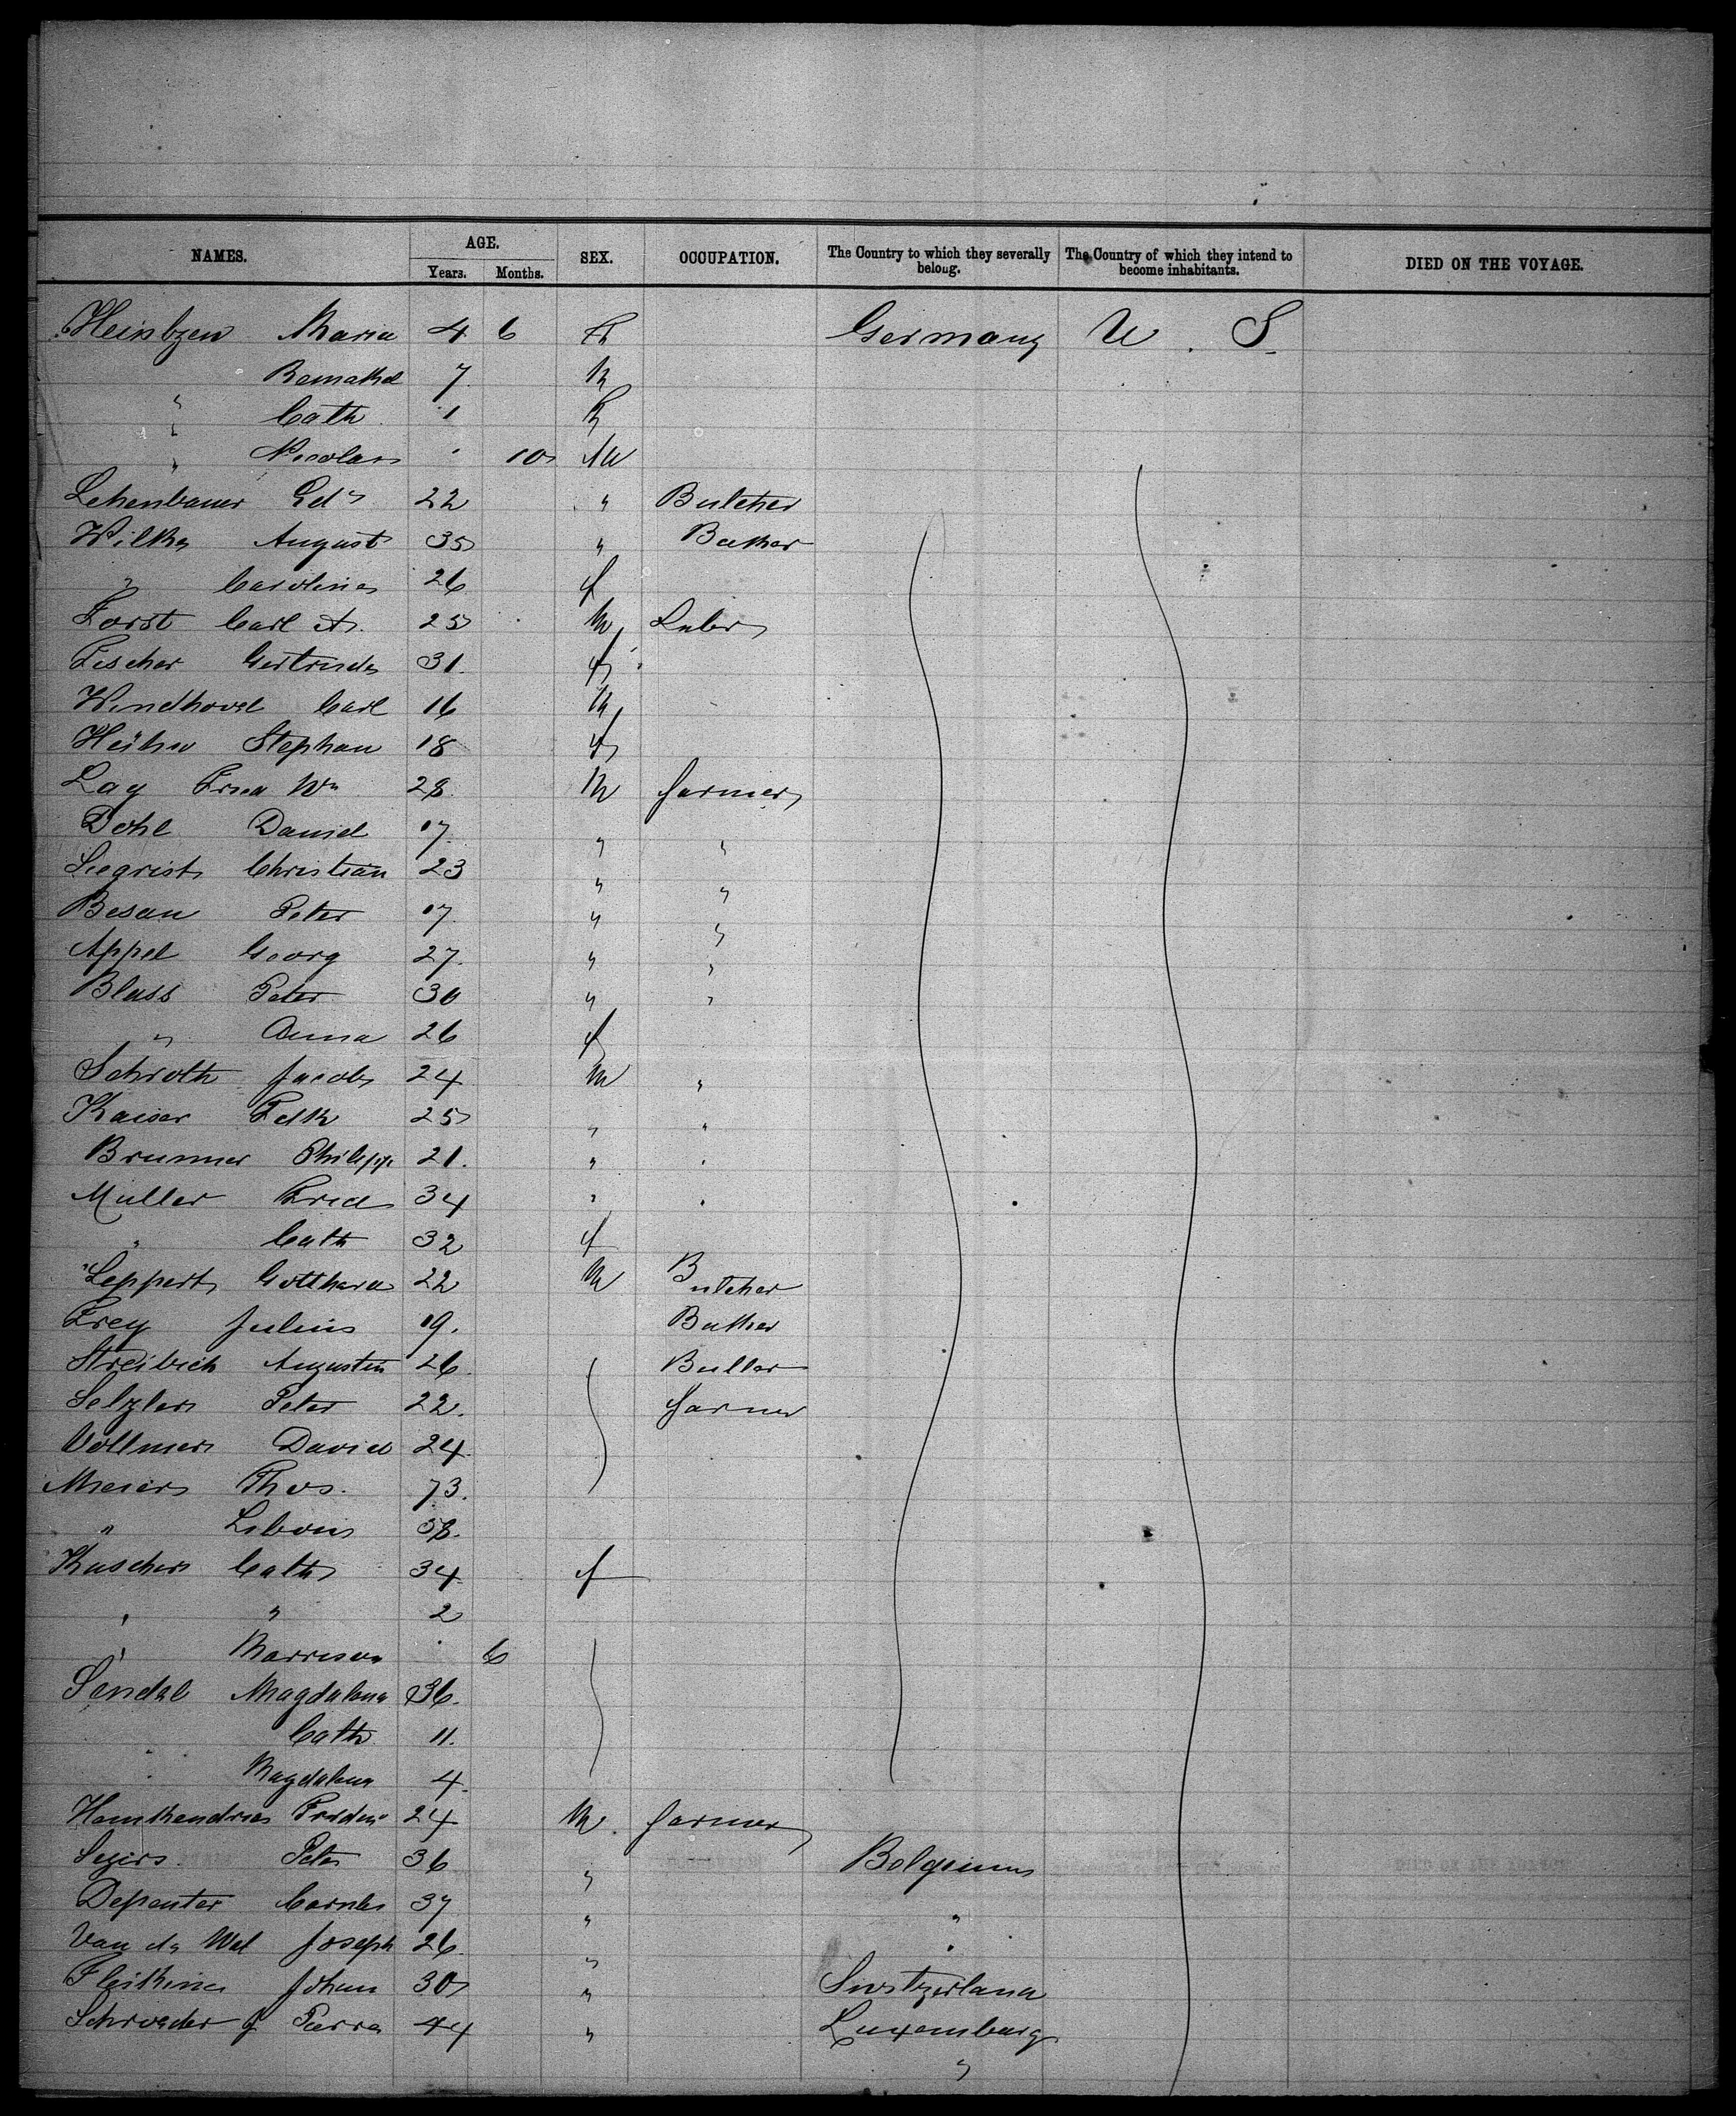 NAMES. AGE. SEX. OCCUPATION. The Country to which they severally belong. The Country of which they intend to become inhabitants. DIED ON THE VOYAGE.
Years. Months.
Maria 4 6 Germany U. S.
7
" Cath 1
" Nicolas 10 M
Lehenbauer Ed 22 " Butcher
Wilke August 35 " Baker
" Caroline 26 f
Forst Carl A. 25 M Labr
Fischer Gertrude 31 f
Windhovel Carl 16 M
Stephan 18 f
Lay Fried Wm 28 M farmer
Dohl Daniel 17 " "
Segrist Christian 23 " "
Besan Peter 17 " "
Appel Georg 27 " "
Blass Peter 30 " "
" Anna 26 f
Schroth Jacob 24 M "
Kaiser Fdk 25 " "
Brunner Philipp 21 " "
Muller Fried 34 " "
" Cath 32 f
Leppert Gotthard 22 M Butcher
Frey Julius 19 Baker
Streibich Augustin 26
Selzler Peter 22 farmer
Vollmer David 24
Meier Thos. 73
" 58
Kuscher Cath 34 f
" " 2
" 6
Sendal Magdalena 36
Cath 11
" Magdalena 4
24 M farmer
Segirs Peter 36 " Belgium
Depauter 37 " "
Van de Wal Joseph 26 " "
Johan 30 " Switzerland
Schroeder 44 " Luxemburg
"